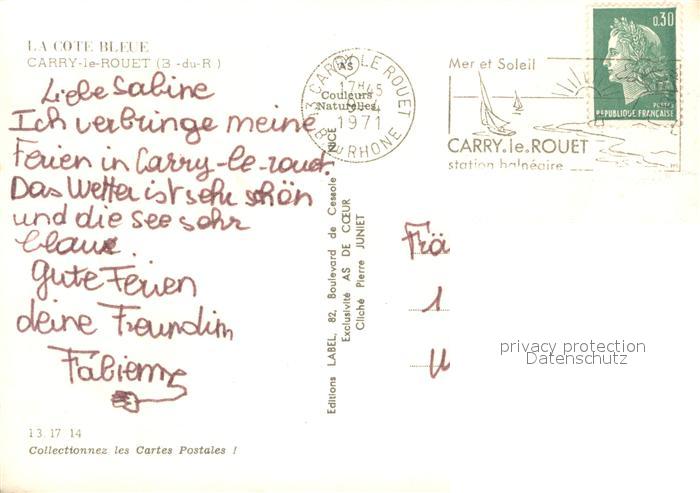 LA COTE BLEUE
CARRY-le-ROUET (B-du-R)
Liebe Sabine
Ich verbringe meine
Ferien in Carry-le-rouet.
Das Wetter ist sehr schön
und die See sehr
blau.
Gute Ferien
deine Freundin
Fabienne
13.17 14
Collectionnez les Cartes Postales !
Editions LABEL, 82, Boulevard de Cessole NICE
Exclusivité AS DE CŒUR
Cliché Pierre JUNIET
AS
Couleurs
Naturelles
CARRY LE ROUET
17H45
1971
B. DU RHONE
Mer et Soleil
CARRY.le.ROUET
station balnéaire
0,30
POSTES
REPUBLIQUE FRANÇAISE
Frä
1
privacy protection
Datenschutz